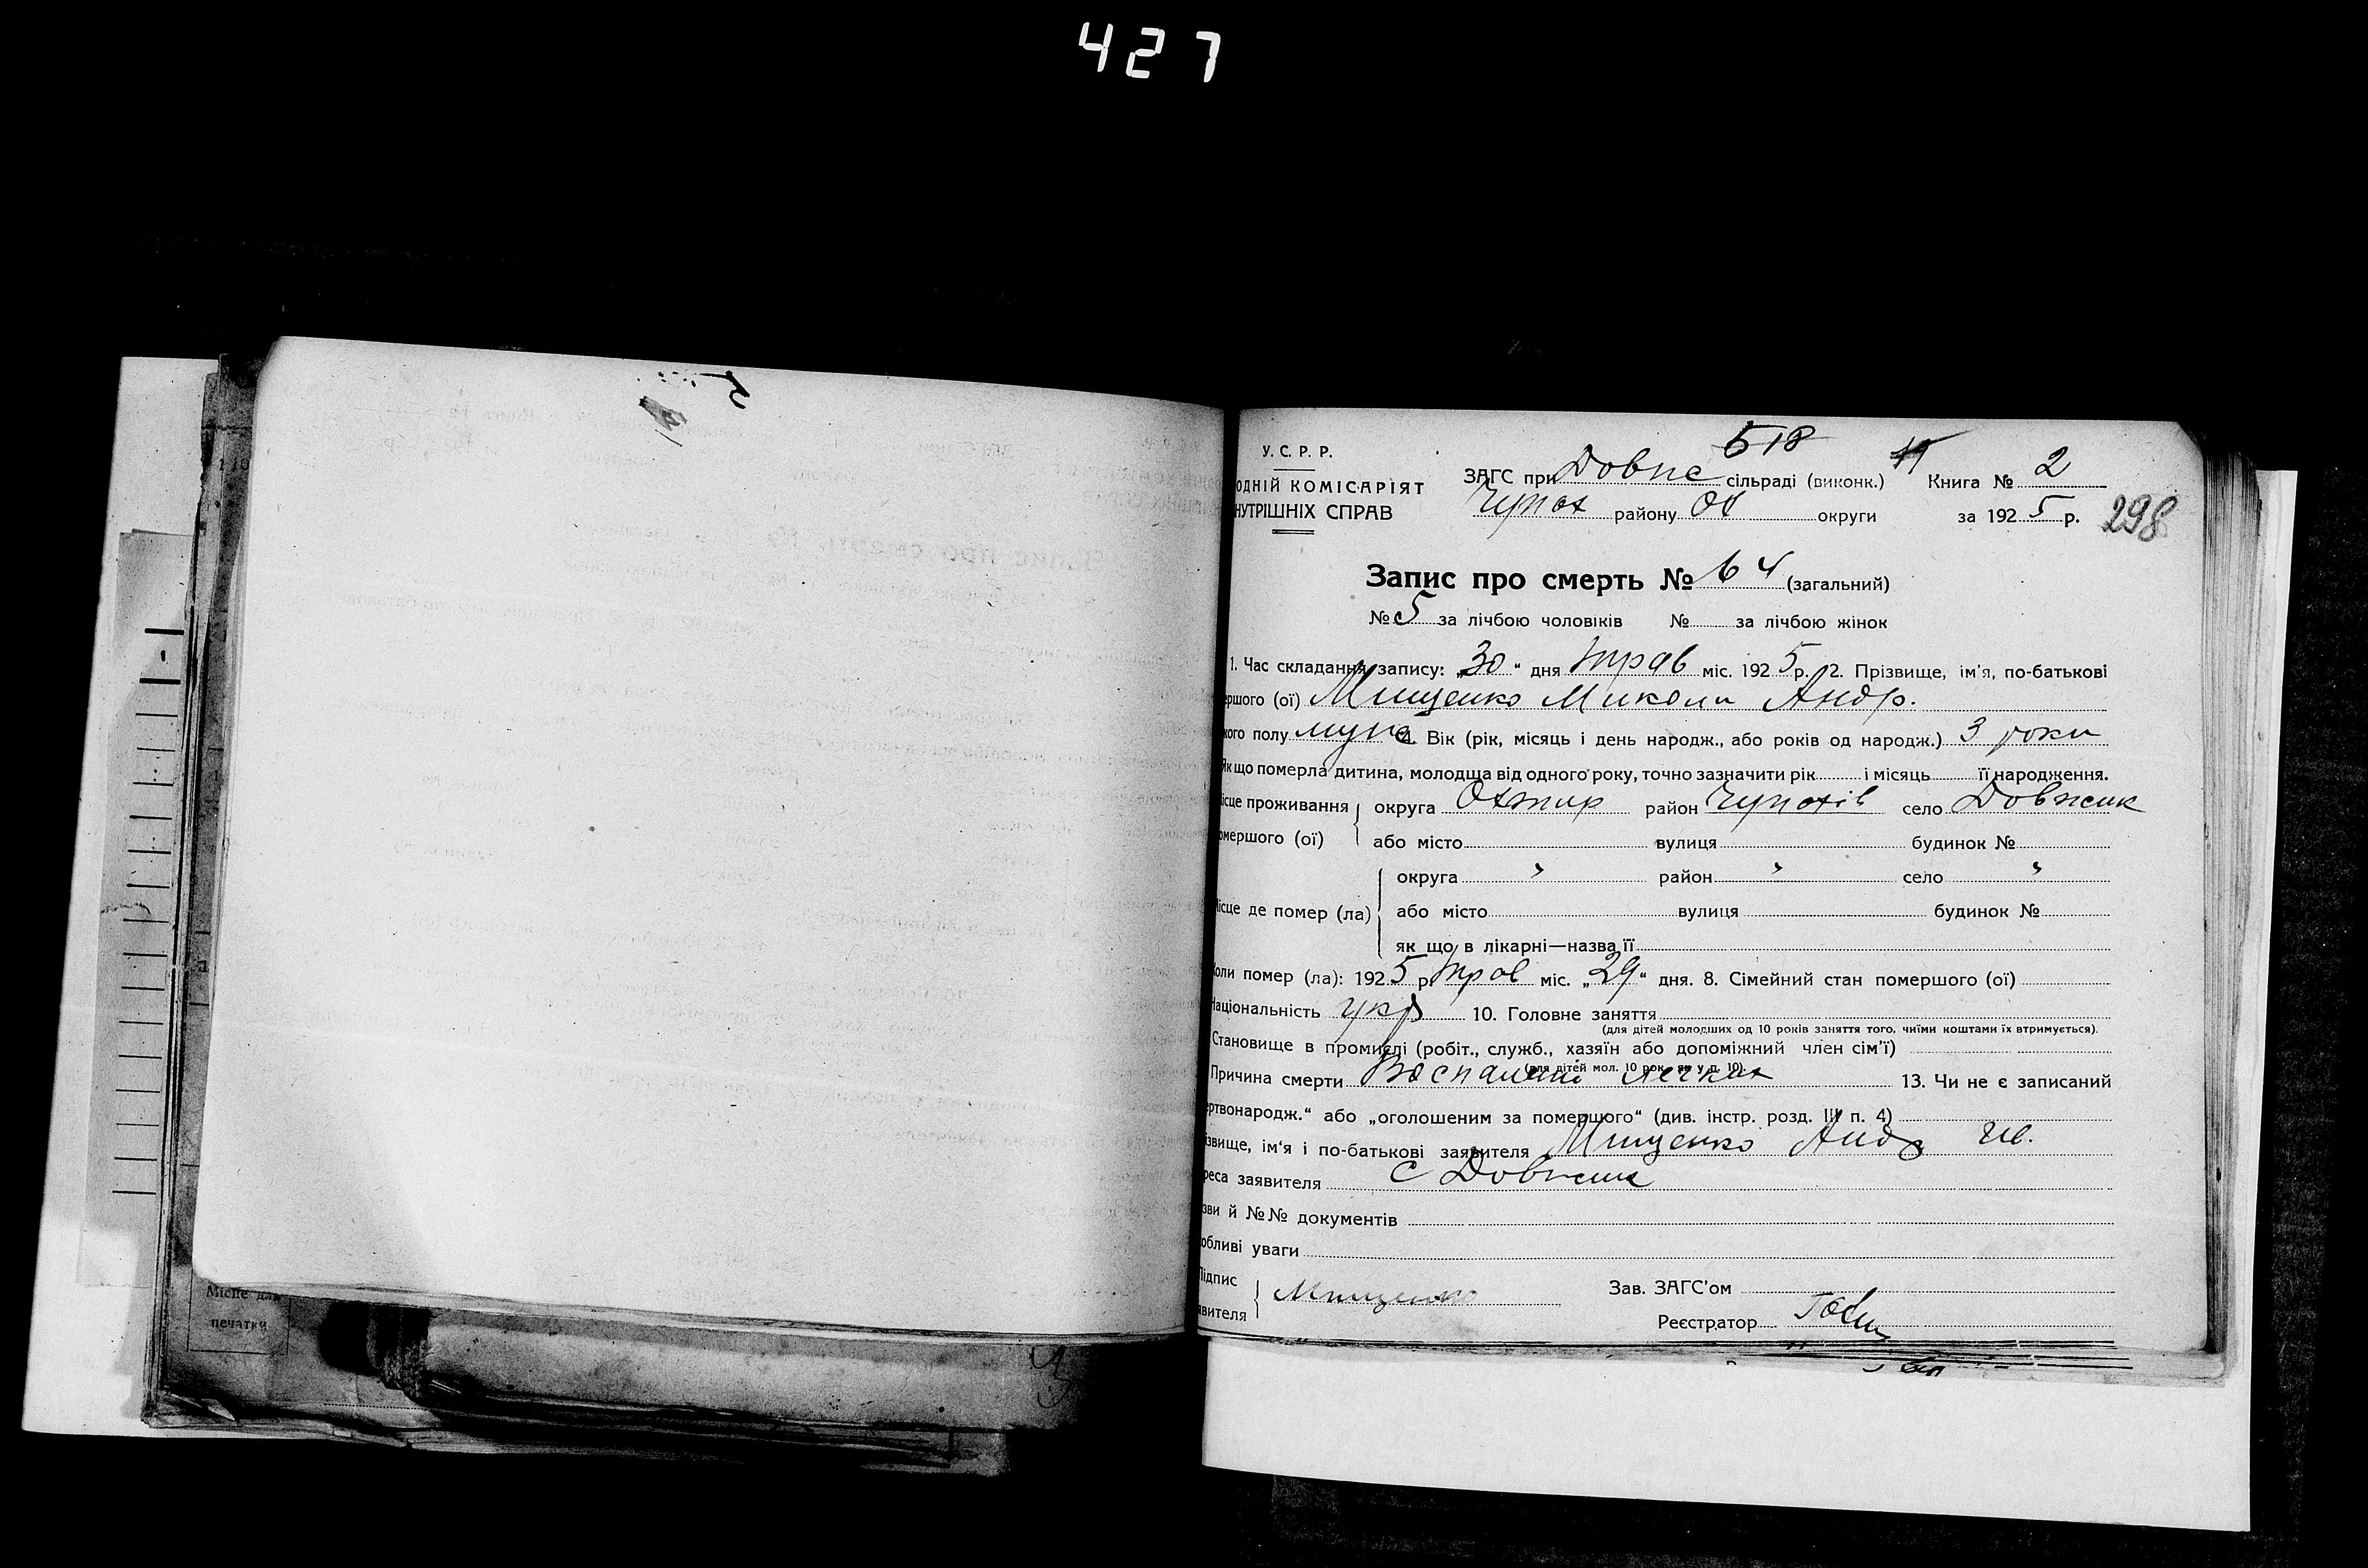 427
518
У. С. Р. Р.
ЗАГС при Довже сільраді (виконк.) Книга № 2
ОДНІЙ КОМІСАРІЯТ
НУТРІШНІХ СПРАВ
Чупах району Ох округи за 1925 р.
298
Запис про смерть № 64 (загальний)
№ 5 за лічбою чоловіків № за лічбою жінок
1. Час складання запису: „30“ дня трав міс. 1925 р. 2. Прізвище, ім'я, по-батькові
ершого (ої) Мищенко Микола Андр.
кого полу муж 4. Вік (рік, місяць і день народж., або років од народж.) 3 роки
Як що померла дитина, молодща від одного року, точно зазначити рік і місяць її народження.
ісце проживання округа Охтир район Чупахів село Довжик
омершого (ої) або місто вулиця будинок №
округа „ район „ село „
ісце де помер (ла) або місто вулиця будинок №
як що в лікарні—назва її
оли помер (ла): 1925 р. трав міс. „29“ дня. 8. Сімейний стан помершого (ої)
Національність укр 10. Головне заняття
(для дітей молодших од 10 років заняття того, чиїми коштами їх втримується).
Становище в промислі (робіт., служб., хазяїн або допоміжний член сім'ї)
(для дітей мол. 10 рок. як у п. 10).
Причина смерти Воспаление легких 13. Чи не є записаний
ертвонародж.“ або „оголошеним за помершого“ (див. інстр. розд. III п. 4)
ізвище, ім'я і по-батькові заявителя Мищенко Андр
реса заявителя с Довжик
зви й №№ документів
обливі уваги
Підпис
явителя Мищенко
Зав. ЗАГС'ом
Реєстратор
Місце для
печатки